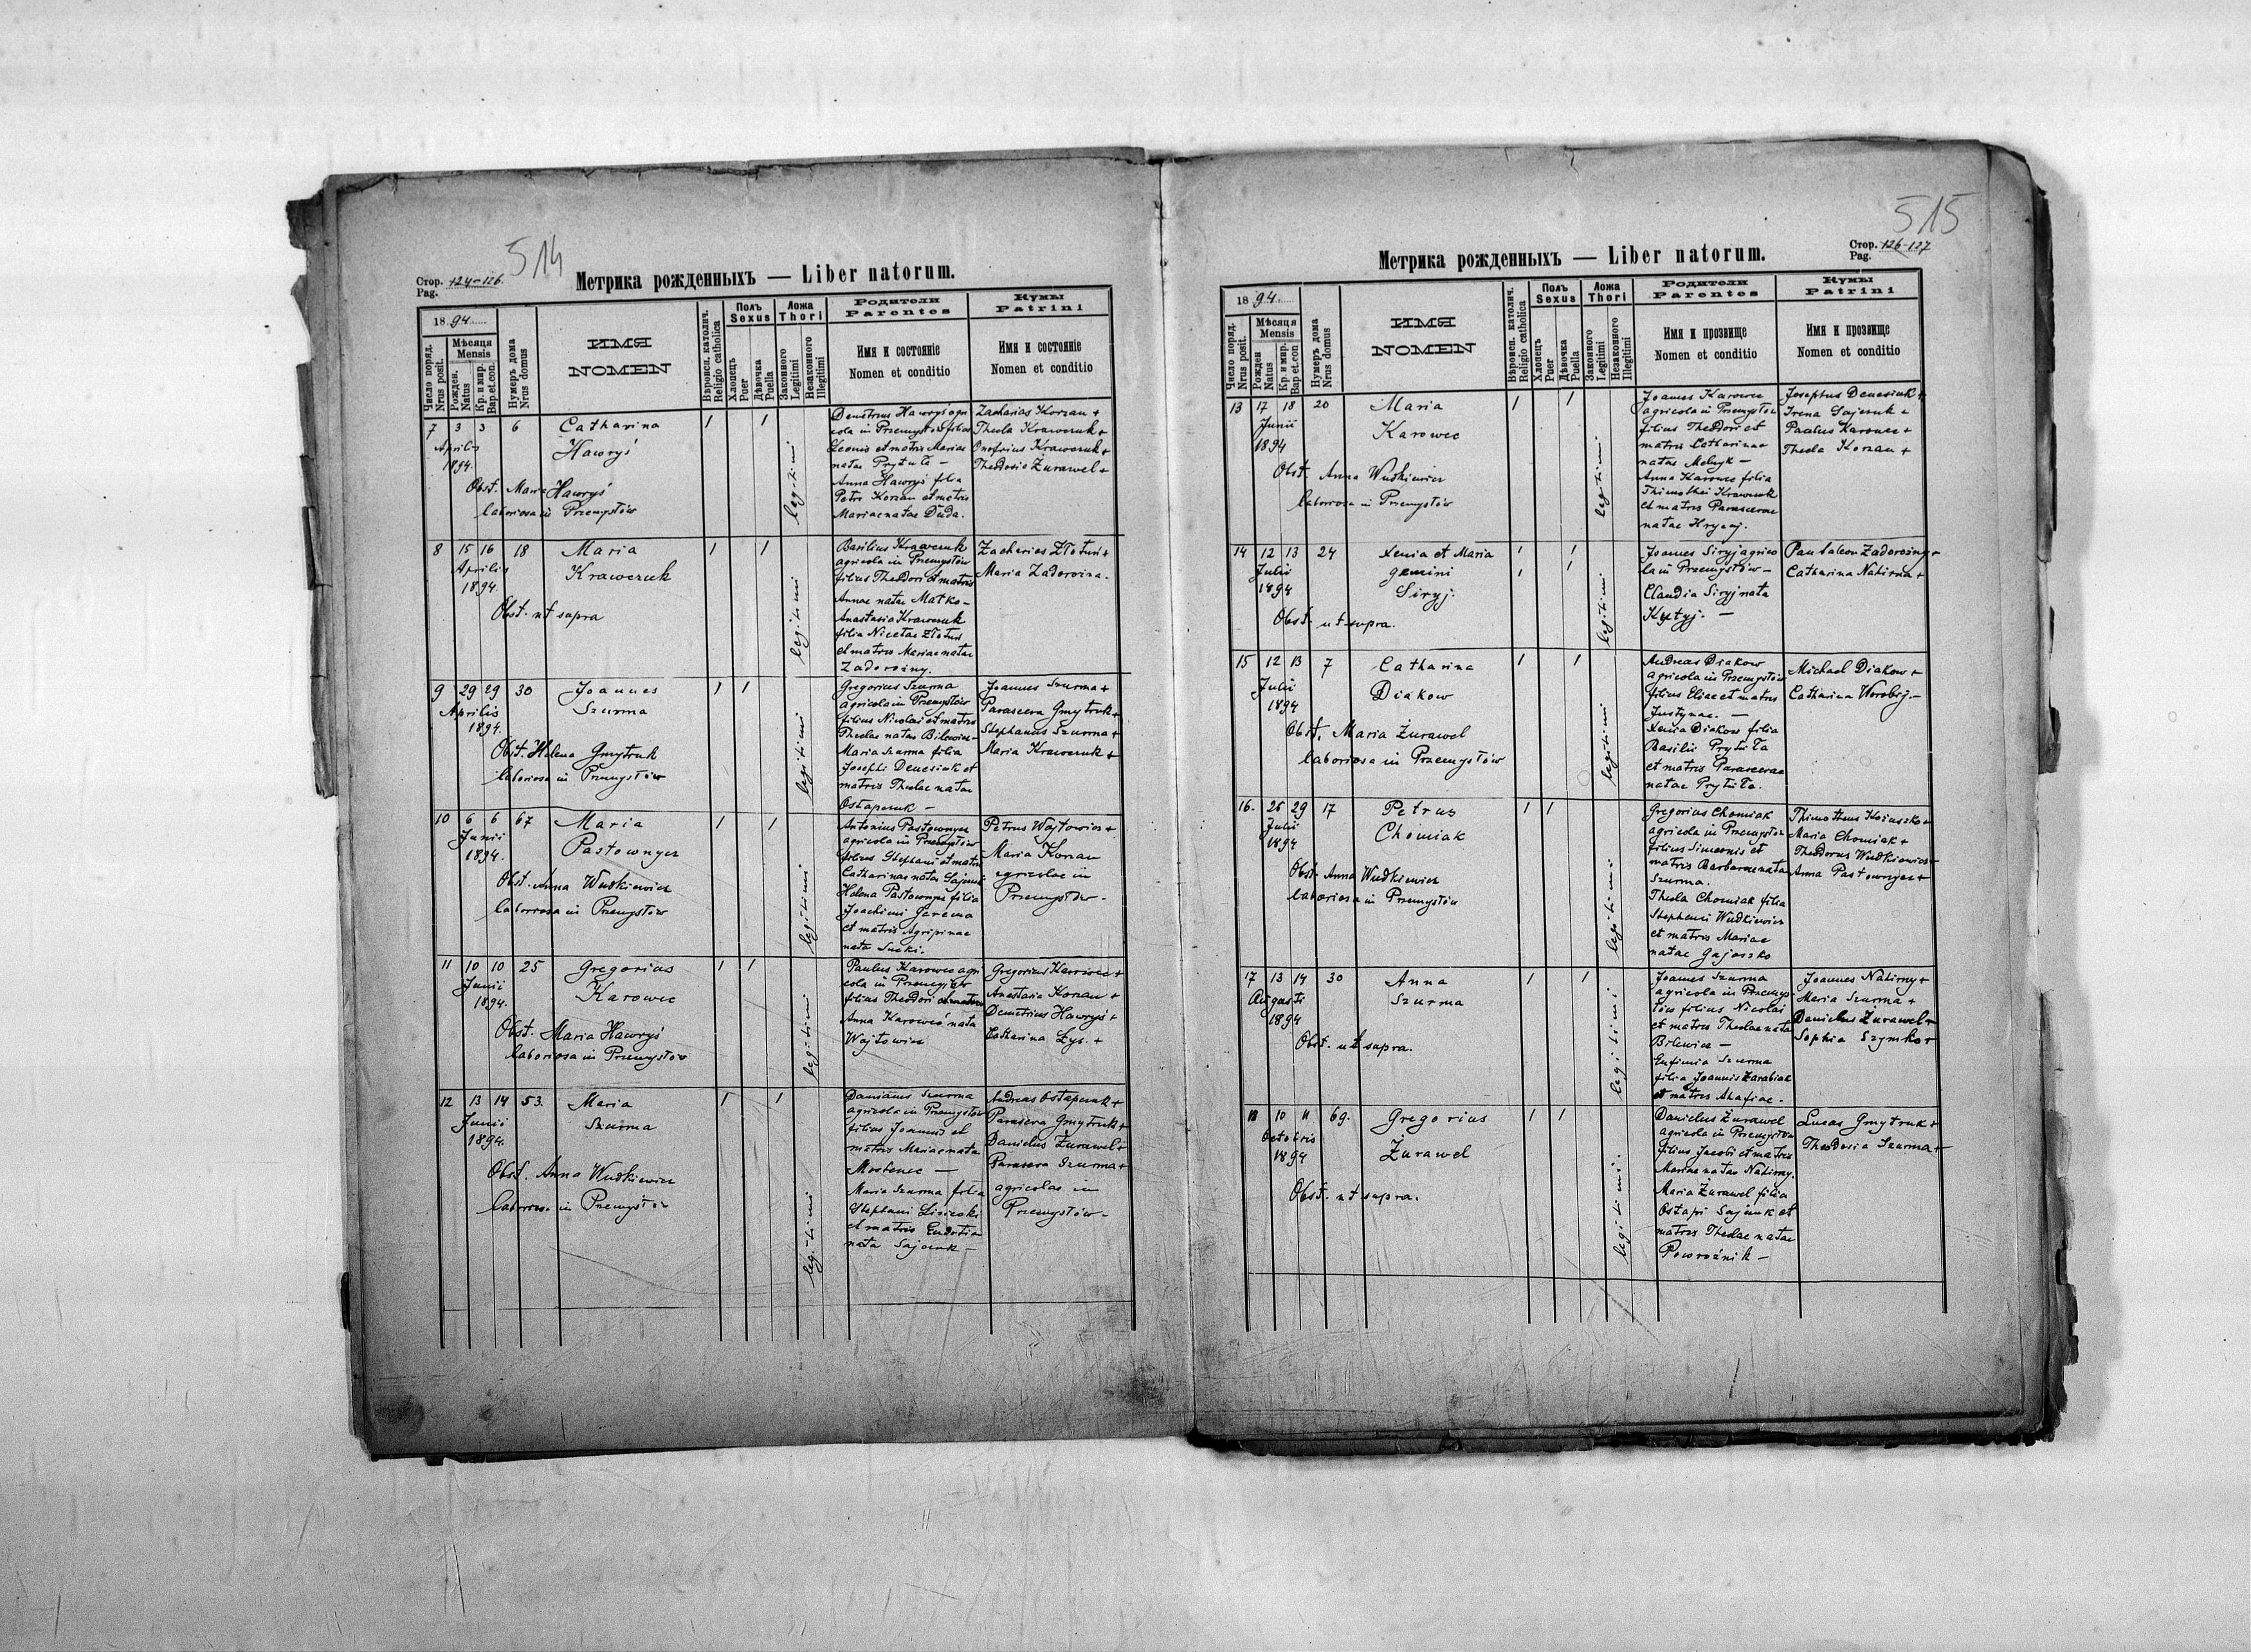 514
Стор. 124-126.
Pag.
Метрика рожденныхъ — Liber natorum.
1894
Число поряд.
Nrus posit.
Мѣсяца
Mensis
Рожден.
Natus
Кр. и мир.
Bap. et con.
Нумеръ дома
Nrus domus
ИМЯ
NOMEN
Вѣроисп. католич.
Religio catholica
Полъ
Sexus
Хлопецъ
Puer
Дѣвочка
Puella
Ложа
Thori
Законного
Legitimi
Незаконного
Illegitimi
Родители
Parentes
Имя и состояніе
Nomen et conditio
Кумы
Patrini
Имя и состояніе
Nomen et conditio
7 3 3 6 Catharina 1 1
Aprilis Hawryś
1894.
Obst. Maria Hawryś
laboriosa in Przemysłów
legitimi
Demetrius Hawryś agri
cola in Przemysłów filius
Leonis et matris Mariae
natae Prytuła —
Anna Hawryś filia
Petri Korzan et matris
Mariae natae Duda.
Zacharias Korzan +
Thecla Krawczuk +
Onofrius Krawczuk +
Theodosia Żurawel +
8 15 16 18 Maria 1 1
Aprilis Krawczuk
1894.
Obst. ut supra
legitimi
Basilius Krawczuk
agricola in Przemysłów
filius Theodori et matris
Annae natae Matko —
Anastasia Krawczuk
filia Nicetae Złotuń
et matris Mariae natae
Zadorożny.
Zacharias Złotuń +
Maria Zadorożna.
9 29 29 30 Joannes 1 1
Aprilis Szurma
1894.
Obst. Helena Gmytruk
laboriosa in Przemysłów
legitimi
Gregorius Szurma
agricola in Przemysłów
filius Nicolai et matris
Theclae natae Bilewicz —
Maria Szurma filia
Josephi Denesiuk et
matris Theclae natae
Ostapczuk —
Joannes Szurma +
Parascewa Gmytruk +
Stephanus Szurma +
Maria Krawczuk +
10 6 6 67 Maria 1 1
Junii Pastownycz
1894.
Obst. Anna Wudkiewicz
laboriosa in Przemysłów
legitimi
Antonius Pastownycz
agricola in Przemysłów
filius Stephani et matris
Catharinae natae
Helena Pastownycz filia
Joachimi Jarema
et matris Agripinae
nata Sucki.
Petrus Wojtowicz +
Maria Korzan
agricolae in
Przemysłów.
11 10 10 25 Gregorius 1 1
Junii Karowec
1894.
Obst. Maria Hawryś
laboriosa in Przemysłów
legitimi
Paulus Karowec agri
cola in Przemysłów
filius Theodori et matris
Anna Karowec nata
Wojtowicz
Gregorius Karowec +
Anastasia Korzan +
Demetrius Hawryś +
Catharina Łys. +
12 13 14 53. Maria 1 1
Junii Szurma
1894.
Obst. Anna Wudkiewicz
laboriosa in Przemysłów
legitimi
Damianus Szurma
agricola in Przemysłów
filius Joannis et
matris Mariae nata
Mostenec —
Maria Szurma filia
Stephani Lisiecki
et matris
nata Sajczuk —
Andreas Ostapczuk +
Parascewa Gmytruk +
Danielus Żurawel +
Parascewa Szurma +
agricolae in
Przemysłów —
515
Стор. 126-127
Pag.
Метрика рожденныхъ — Liber natorum.
1894
Число поряд.
Nrus posit.
Мѣсяца
Mensis
Рожден
Natus
Кр. и мир.
Bap et.con
Нумеръ дома
Nrus domus
ИМЯ
NOMEN
Вѣроисп. католич.
Religio catholica
Полъ
Sexus
Хлопецъ
Puer
Дѣвочка
Puella
Ложа
Thori
Законного
Legitimi
Незаконного
Illegitimi
Родители
Parentes
Имя и прозвище
Nomen et conditio
Кумы
Patrini
Имя и прозвище
Nomen et conditio
13 17 18 20 Maria 1 1
Junii Karowec
1894
Obst. Anna Wudkiewicz
laboriosa in Przemysłów
legitimi
Joannes Karowec
agricola in Przemysłów
filius Theodori et
matris Catharinae
natae Melnyk —
Anna Karowec filia
Thimothei Krawczuk
et matris Parascevae
natae Hrycaj.
Josephus Denesiuk +
Irena Sajczuk +
Paulus Karowec +
Thecla Korzan +
14 12 13 24 Xenia et Maria 1 1
Julii gemini 1 1
1894 Siryj.
Obst. ut supra.
legitimi
Joannes Siryj agrico
la in Przemysłów —
Claudia Siryj nata
Kytyj. —
Pantaleon Zadorożny +
Catharina Nahirna +
15 12 13 7 Catharina 1 1
Julii Diakow
1894
Obst. Maria Żurawel
laboriosa in Przemysłów
legitimi
Andreas Diakow
agricola in Przemysłów
filius Eliae et matris
Justynae. —
Xenia Diakow filia
Basilii Prytuła
et matris Parascevae
natae Prytuła.
Michael Diakow +
Catharina Worobij. —
16. 26 29 17 Petrus 1 1
Julii Chomiak
1894
Obst. Anna Wudkiewicz
laboriosa in Przemysłów
legitimi
Gregorius Chomiak
agricola in Przemysłów
filius Simeonis et
matris Barbarae nata
Szurma.
Thecla Chomiak filia
Stephani Wudkiewicz
et matris Mariae
natae Gajoszko
Thimotheus +
Maria Chomiak +
Theodorus Wudkiewicz +
Anna Pastownycz +
17 13 14 30 Anna 1 1
Augusti Szurma
1894
Obst. ut supra.
legitimi
Joannes Szurma
agricola in Przemys
łów filius Nicolai
et matris Theclae nata
Bilewicz —
Eufimia Szurma
filia Joannis Zarabiak
et matris Ahafiae.
Joannes Nahirny +
Maria Szurma +
Danielus Żurawel +
Sophia Szymko +
18 10 11 69. Gregorius 1 1
Octobris Żurawel
1894
Obst. ut supra.
legitimi.
Danielus Żurawel
agricola in Przemysłów
filius Jacobi et matris
Mariae natae Nahirny.
Maria Żurawel filia
Ostapi Sajczuk et
matris Theclae natae
Powroźnik —
Lucas Gmytruk +
Theodosia Szurma +